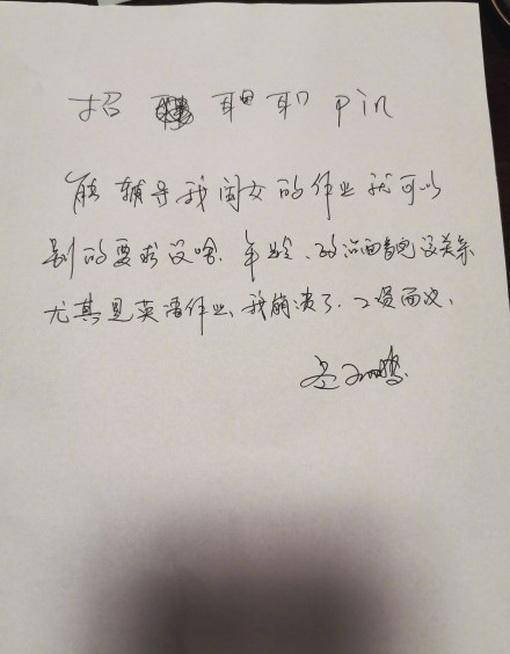 招 pin
能辅导我闺女的作业就可以
别的要求没啥.年龄、政治面貌没关系
尤其是英语作业、我崩溃了.工资面议.